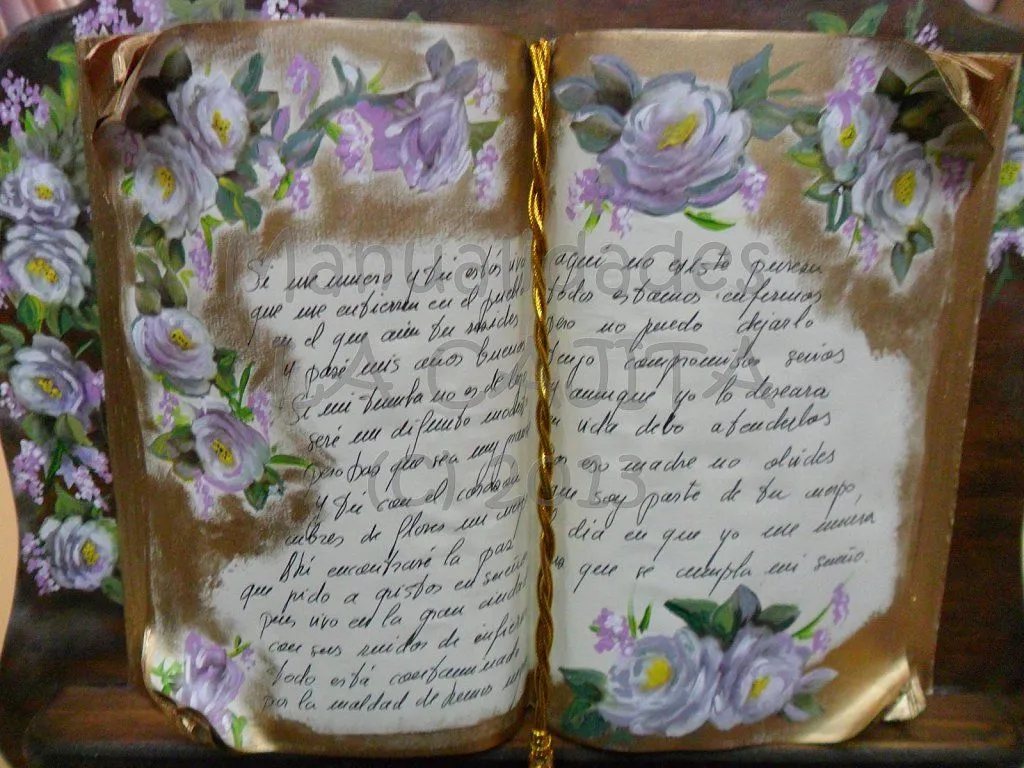 Si me muero y tú estás viva
que me entierren en el pueblo
en el que aún tu resides
y pasé mis años buenos
Si mi tumba no es de lujo
seré un difunto modesto
pero haz que sea muy
y tú con el corazón
cubres de flores mi
Ahí encontraré la paz
que pido a gritos en silencio
pues vivo en la gran ciudad
con sus ruidos de
todo está contaminado
por la maldad de
aquí no existe pureza
todos estamos enfermos
pero no puedo dejarlo
tengo compromisos serios
y aunque yo lo deseara
en vida debo atenderlos
por eso madre no olvides
que soy parte de tu cuerpo,
el día en que yo me muera
haz que se cumpla mi sueño.
Manualidades
LA CAJITA
(C) 2013